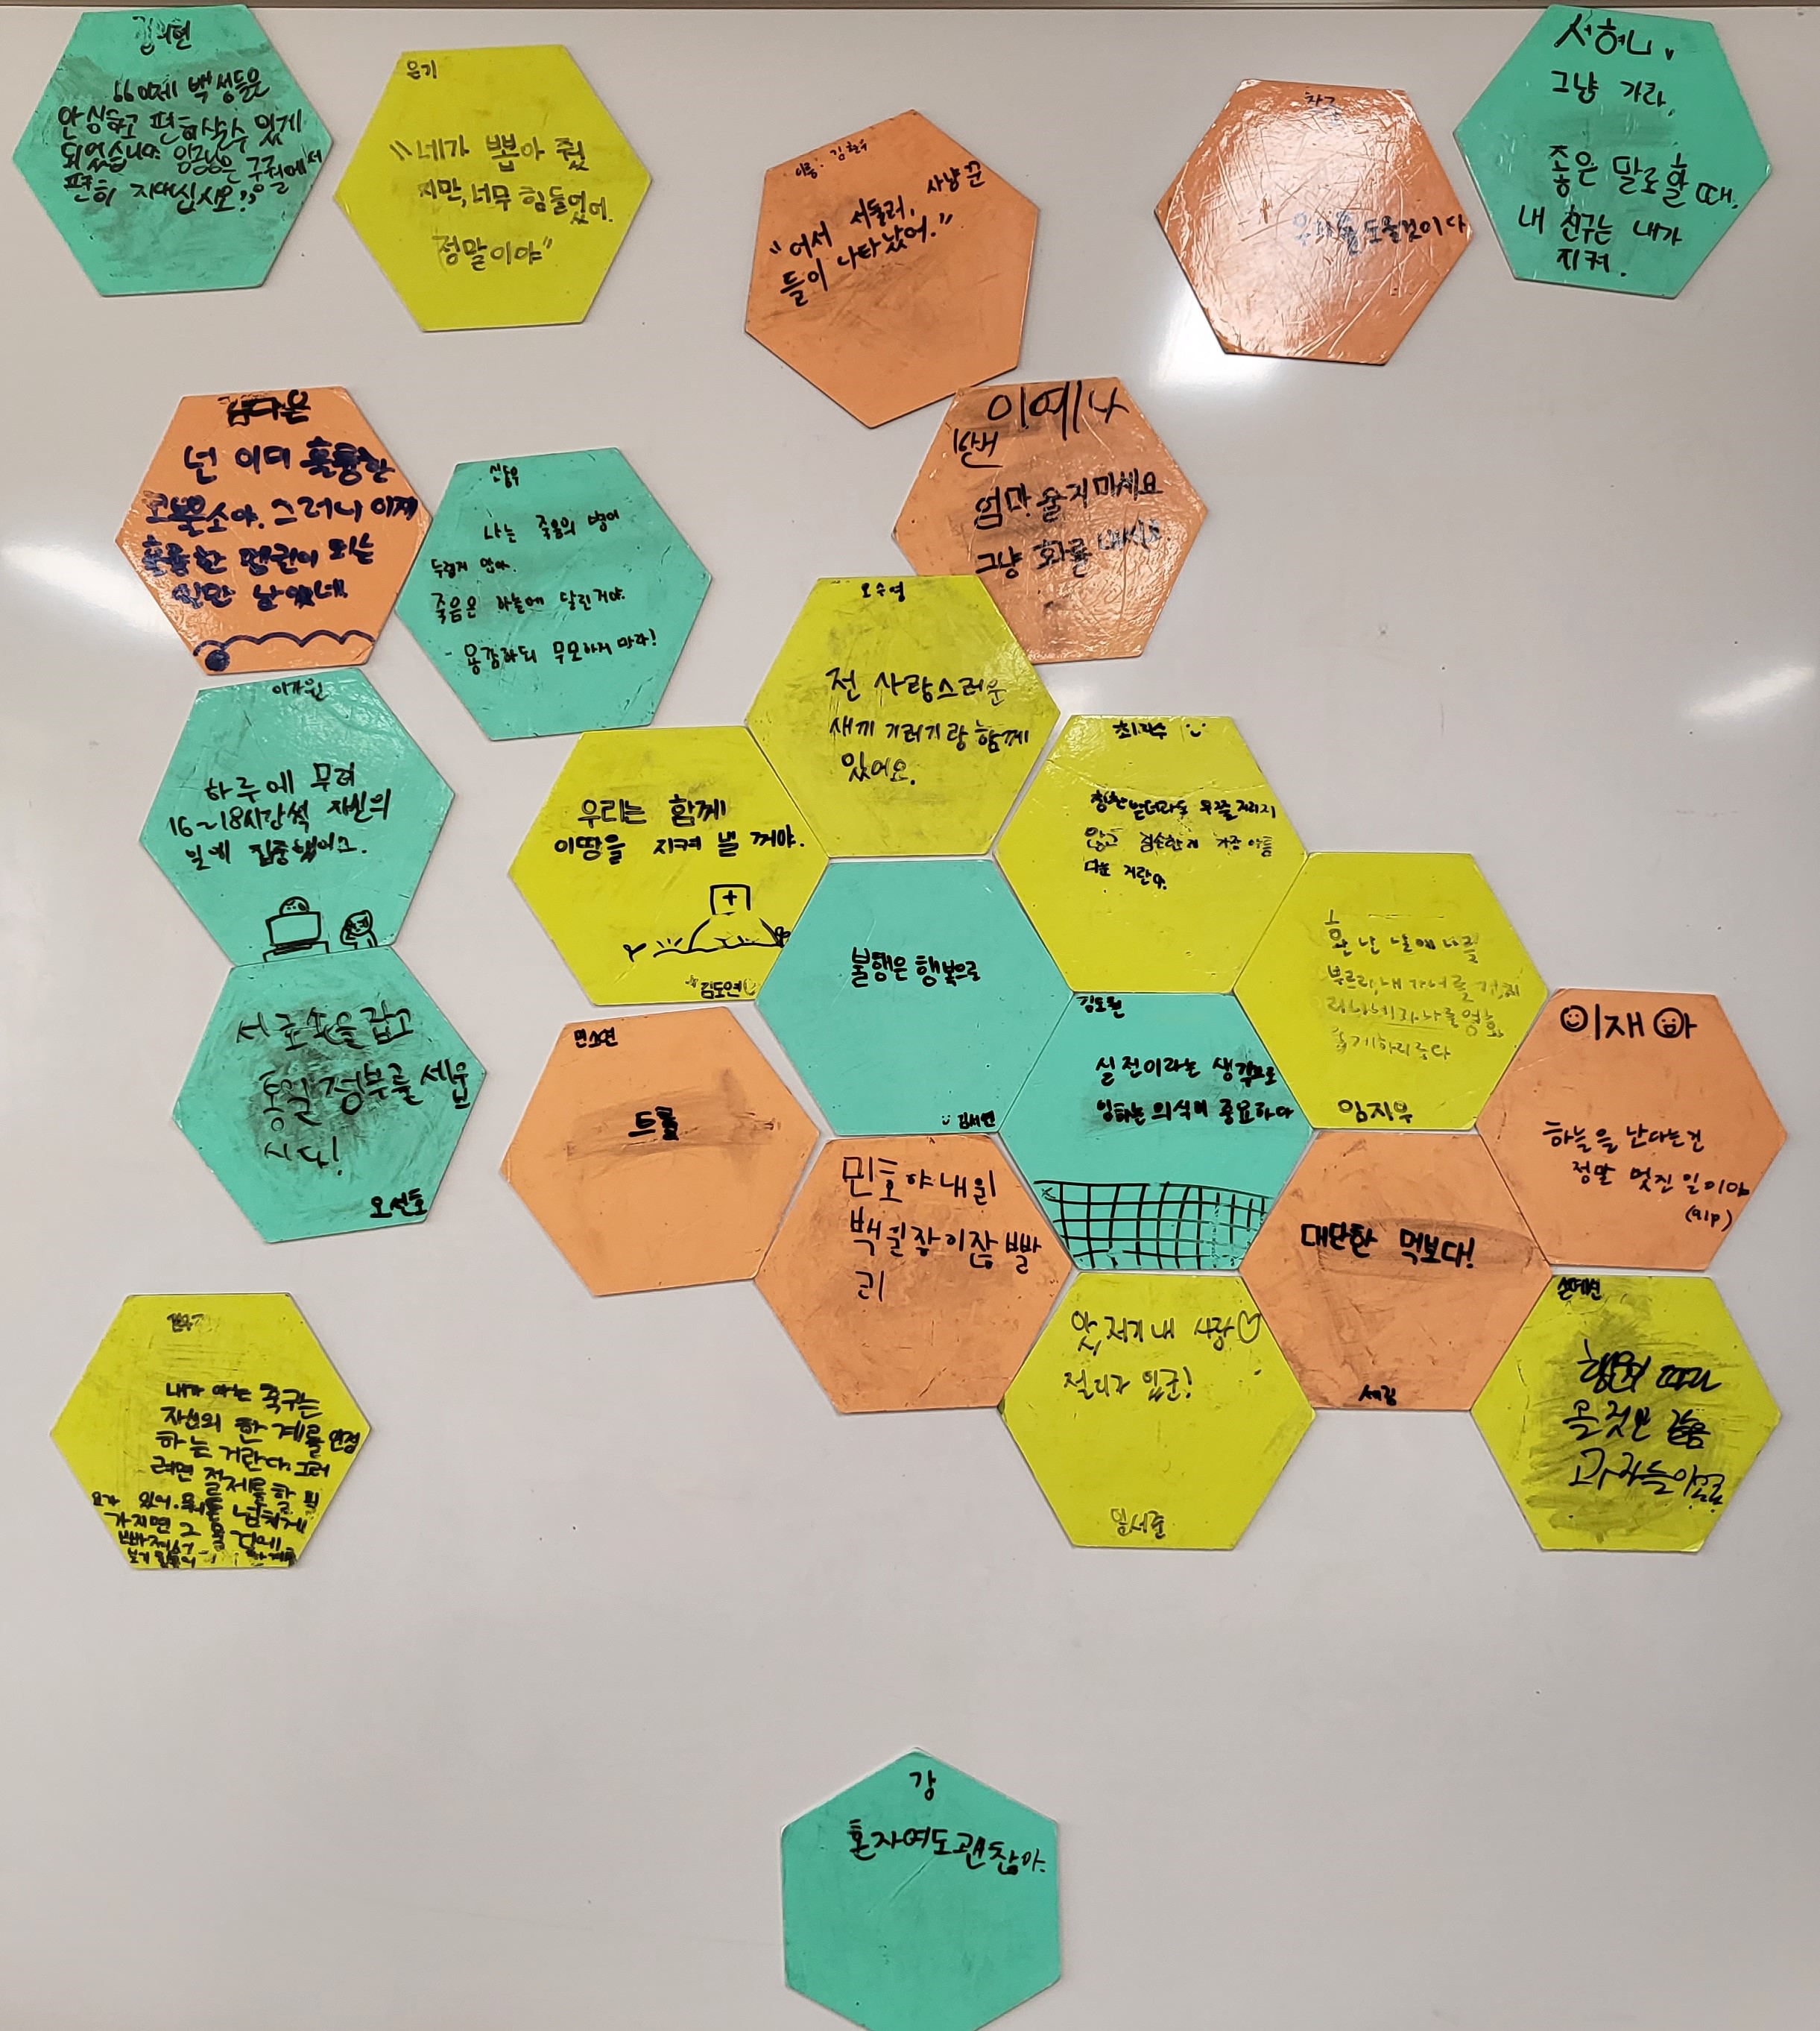 "이제 백성들은
안심하고 편히 살수 있게
되었습니다. 임금님은 구월에서
편히 지내십시오."
은기
"네가 뽑아 줬
지만, 너무 힘들었어.
정말이야"
이름: 김현우
"어서 서둘러, 사냥꾼
들이 나타났어."
도울것이다
서허니
그냥 가라.
좋은 말로할 때,
내 친구는 내가
지켜.
김다은
넌 이미 훌륭한
코뿔소야. 그러니 이제
훌륭한 펭귄이 되는
일만 남았네.
나는 죽음의 병이
두렵지 않아.
죽음은 하늘에 달린거야.
- 용감하되 무모하지 마라!
이예나
엄마 울지마세요
그냥 화를 내세요.
오수영
전 사랑스러운
새끼 기러기랑 함께
있어요.
이가원
하루에 무려
16~18시간씩 자신의
일에 집중했어요.
우리는 함께
이땅을 지켜 낼 꺼야.
김도연
칭찬받더라도 우쭐거리지
않고 겸손한게 가장 아름
다운 거란다.
불행은 행복으로
김서연
환난 날에 나를
부르라, 내가 너를 건지
리니 네가 나를 영화
롭게하리로다
임지우
서로 손을 잡고
통일 정부를 세웁
시다!
오선호
민소연
트롤
김도현
실전이라는 생각으로
임하는 의식이 중요하다
이재아
하늘을 난다는건
정말 멋진 일이야
(이p)
민호야 내 원
백 원 잖이잖 빨
리
대단한 먹보다!
세림
앗, 저기 내 사랑♡
젤리가 있군!
임서준
손예선
형편 따라
온 것만 같음
과자들이었요
내가 아는 축구는
자신의 한계를 인정
하는 거란다. 그러
려면 절제를 할 필
요가 있어. 뭐든 넘치게
가지면 그 물건에
빠져서
강
혼자여도괜찮아.